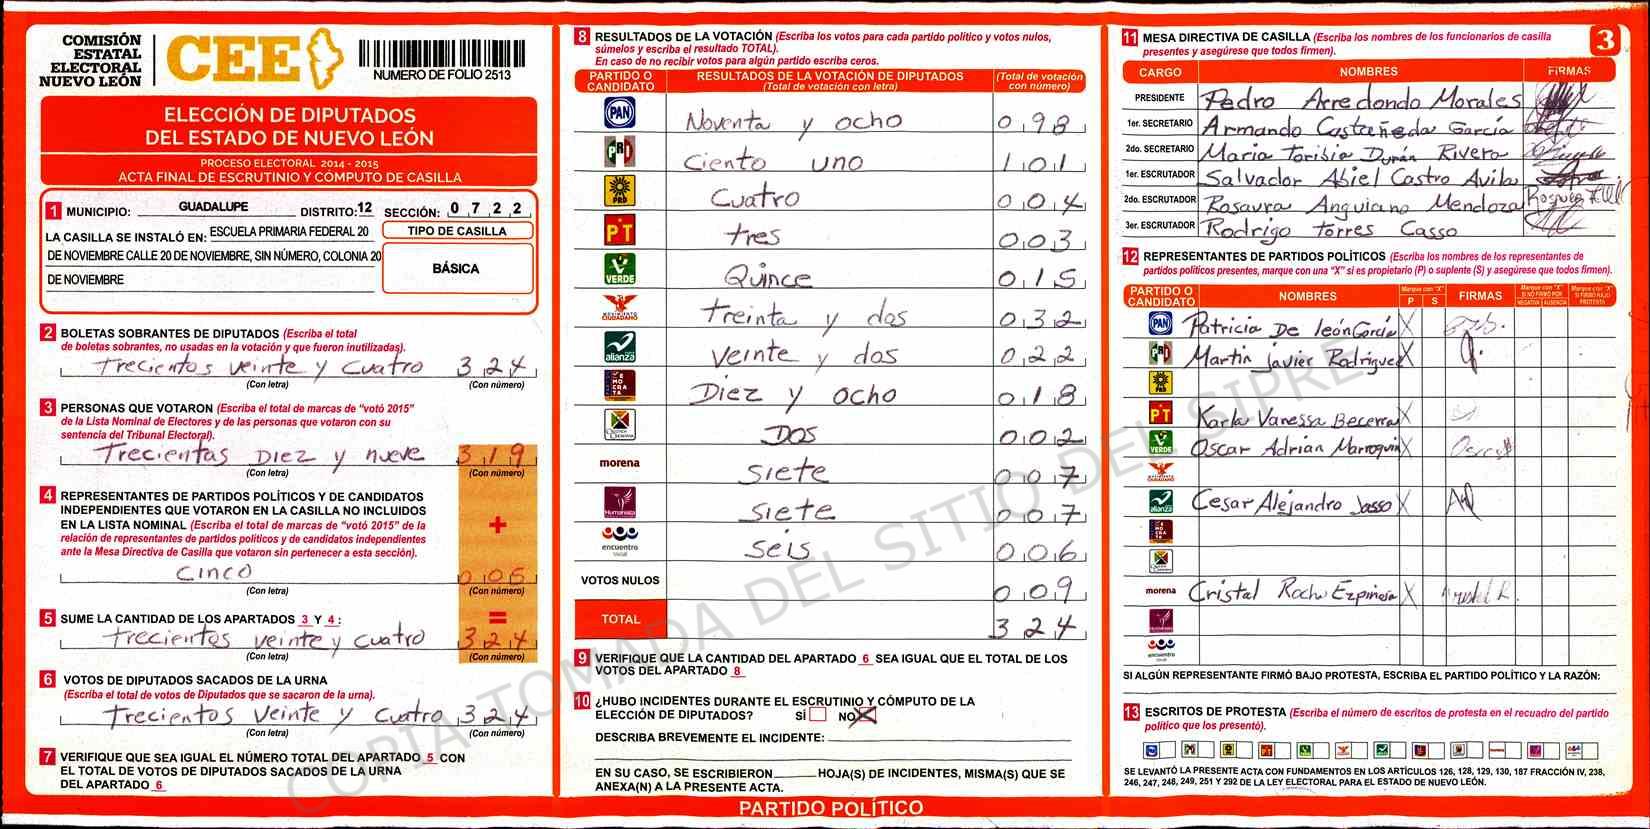 COMISIÓN
ESTATAL
ELECTORAL
NUEVO LEÓN
CEE
NUMERO DE FOLIO 2513
ELECCIÓN DE DIPUTADOS
DEL ESTADO DE NUEVO LEÓN
PROCESO ELECTORAL 2014 - 2015
ACTA FINAL DE ESCRUTINIO Y CÓMPUTO DE CASILLA
1 MUNICIPIO: GUADALUPE DISTRITO: 12 SECCIÓN: 0 7 2 2
LA CASILLA SE INSTALÓ EN: ESCUELA PRIMARIA FEDERAL 20
DE NOVIEMBRE CALLE 20 DE NOVIEMBRE, SIN NÚMERO, COLONIA 20
DE NOVIEMBRE
TIPO DE CASILLA
BÁSICA
2 BOLETAS SOBRANTES DE DIPUTADOS (Escriba el total
de boletas sobrantes, no usadas en la votación y que fueron inutilizadas).
Trecientos veinte y cuatro 3 2 4
(Con letra) (Con número)
3 PERSONAS QUE VOTARON (Escriba el total de marcas de “votó 2015”
de la Lista Nominal de Electores y de las personas que votaron con su
sentencia del Tribunal Electoral).
Trecientas Diez y nueve 3 1 9
(Con letra) (Con número)
4 REPRESENTANTES DE PARTIDOS POLÍTICOS Y DE CANDIDATOS
INDEPENDIENTES QUE VOTARON EN LA CASILLA NO INCLUIDOS
EN LA LISTA NOMINAL (Escriba el total de marcas de “votó 2015” de la
relación de representantes de partidos políticos y de candidatos independientes
ante la Mesa Directiva de Casilla que votaron sin pertenecer a esta sección).
+
Cinco 0 0 5
(Con letra) (Con número)
5 SUME LA CANTIDAD DE LOS APARTADOS 3 Y 4 : =
Trecientos veinte y cuatro 3 2 4
(Con letra) (Con número)
6 VOTOS DE DIPUTADOS SACADOS DE LA URNA
(Escriba el total de votos de Diputados que se sacaron de la urna).
Trecientos Veinte y cuatro 3 2 4
(Con letra) (Con número)
7 VERIFIQUE QUE SEA IGUAL EL NÚMERO TOTAL DEL APARTADO 5 CON
EL TOTAL DE VOTOS DE DIPUTADOS SACADOS DE LA URNA
DEL APARTADO 6
8 RESULTADOS DE LA VOTACIÓN (Escriba los votos para cada partido político y votos nulos,
súmelos y escriba el resultado TOTAL).
En caso de no recibir votos para algún partido escriba ceros.
PARTIDO O CANDIDATO RESULTADOS DE LA VOTACIÓN DE DIPUTADOS (Total de votación con letra) (Total de votación con número)
PAN Noventa y ocho 0 9 8
PRD Ciento uno 1 0 1
PRD Cuatro 0 0 4
PT tres 0 0 3
VERDE Quince 0 1 5
MOVIMIENTO CIUDADANO Treinta y dos 0 3 2
alianza veinte y dos 0 2 2
DEMOCRATA Diez y ocho 0 1 8
DOS 0 0 2
morena siete 0 0 7
Humanista siete 0 0 7
encuentro social seis 0 0 6
VOTOS NULOS 0 0 9
TOTAL 3 2 4
9 VERIFIQUE QUE LA CANTIDAD DEL APARTADO 6 SEA IGUAL QUE EL TOTAL DE LOS
VOTOS DEL APARTADO 8
10 ¿HUBO INCIDENTES DURANTE EL ESCRUTINIO Y CÓMPUTO DE LA
ELECCIÓN DE DIPUTADOS? SÍ NO X
DESCRIBA BREVEMENTE EL INCIDENTE:
EN SU CASO, SE ESCRIBIERON HOJA(S) DE INCIDENTES, MISMA(S) QUE SE
ANEXA(N) A LA PRESENTE ACTA.
PARTIDO POLÍTICO
11 MESA DIRECTIVA DE CASILLA (Escriba los nombres de los funcionarios de casilla
presentes y asegúrese que todos firmen).
3
CARGO NOMBRES FIRMAS
PRESIDENTE Pedro Arredondo Morales
1er. SECRETARIO Armando Castañeda García
2do. SECRETARIO Maria Toribia Durán Rivera
1er. ESCRUTADOR Salvador Abiel Castro Avila
2do. ESCRUTADOR Rosaura Anguiano Mendoza
3er. ESCRUTADOR Rodrigo Torres Casso
12 REPRESENTANTES DE PARTIDOS POLÍTICOS (Escriba los nombres de los representantes de
partidos políticos presentes, marque con una “X” si es propietario (P) o suplente (S) y asegúrese que todos firmen).
PARTIDO O CANDIDATO NOMBRES Marque con “X” P S FIRMAS Marque con “X” SI NO FIRMÓ POR NEGATIVA AUSENCIA Marque con “X” SI FIRMÓ BAJO PROTESTA
PAN Patricia De león García X
Martin javier Rodriguez X
PRD
PT Karla Vanessa Becerra X
VERDE Oscar Adrián Marroquin X
MOVIMIENTO CIUDADANO
alianza Cesar Alejandro Jasso X
DEMOCRATA
morena Cristal Rocha Espinosa X
encuentro social
SI ALGÚN REPRESENTANTE FIRMÓ BAJO PROTESTA, ESCRIBA EL PARTIDO POLÍTICO Y LA RAZÓN:
13 ESCRITOS DE PROTESTA (Escriba el número de escritos de protesta en el recuadro del partido
político que los presentó).
SE LEVANTÓ LA PRESENTE ACTA CON FUNDAMENTOS EN LOS ARTÍCULOS 126, 128, 129, 130, 187 FRACCIÓN IV, 238,
246, 247, 248, 249, 251 Y 292 DE LA LEY ELECTORAL PARA EL ESTADO DE NUEVO LEÓN.
COPIA TOMADA DEL SITIO DEL SIPRE